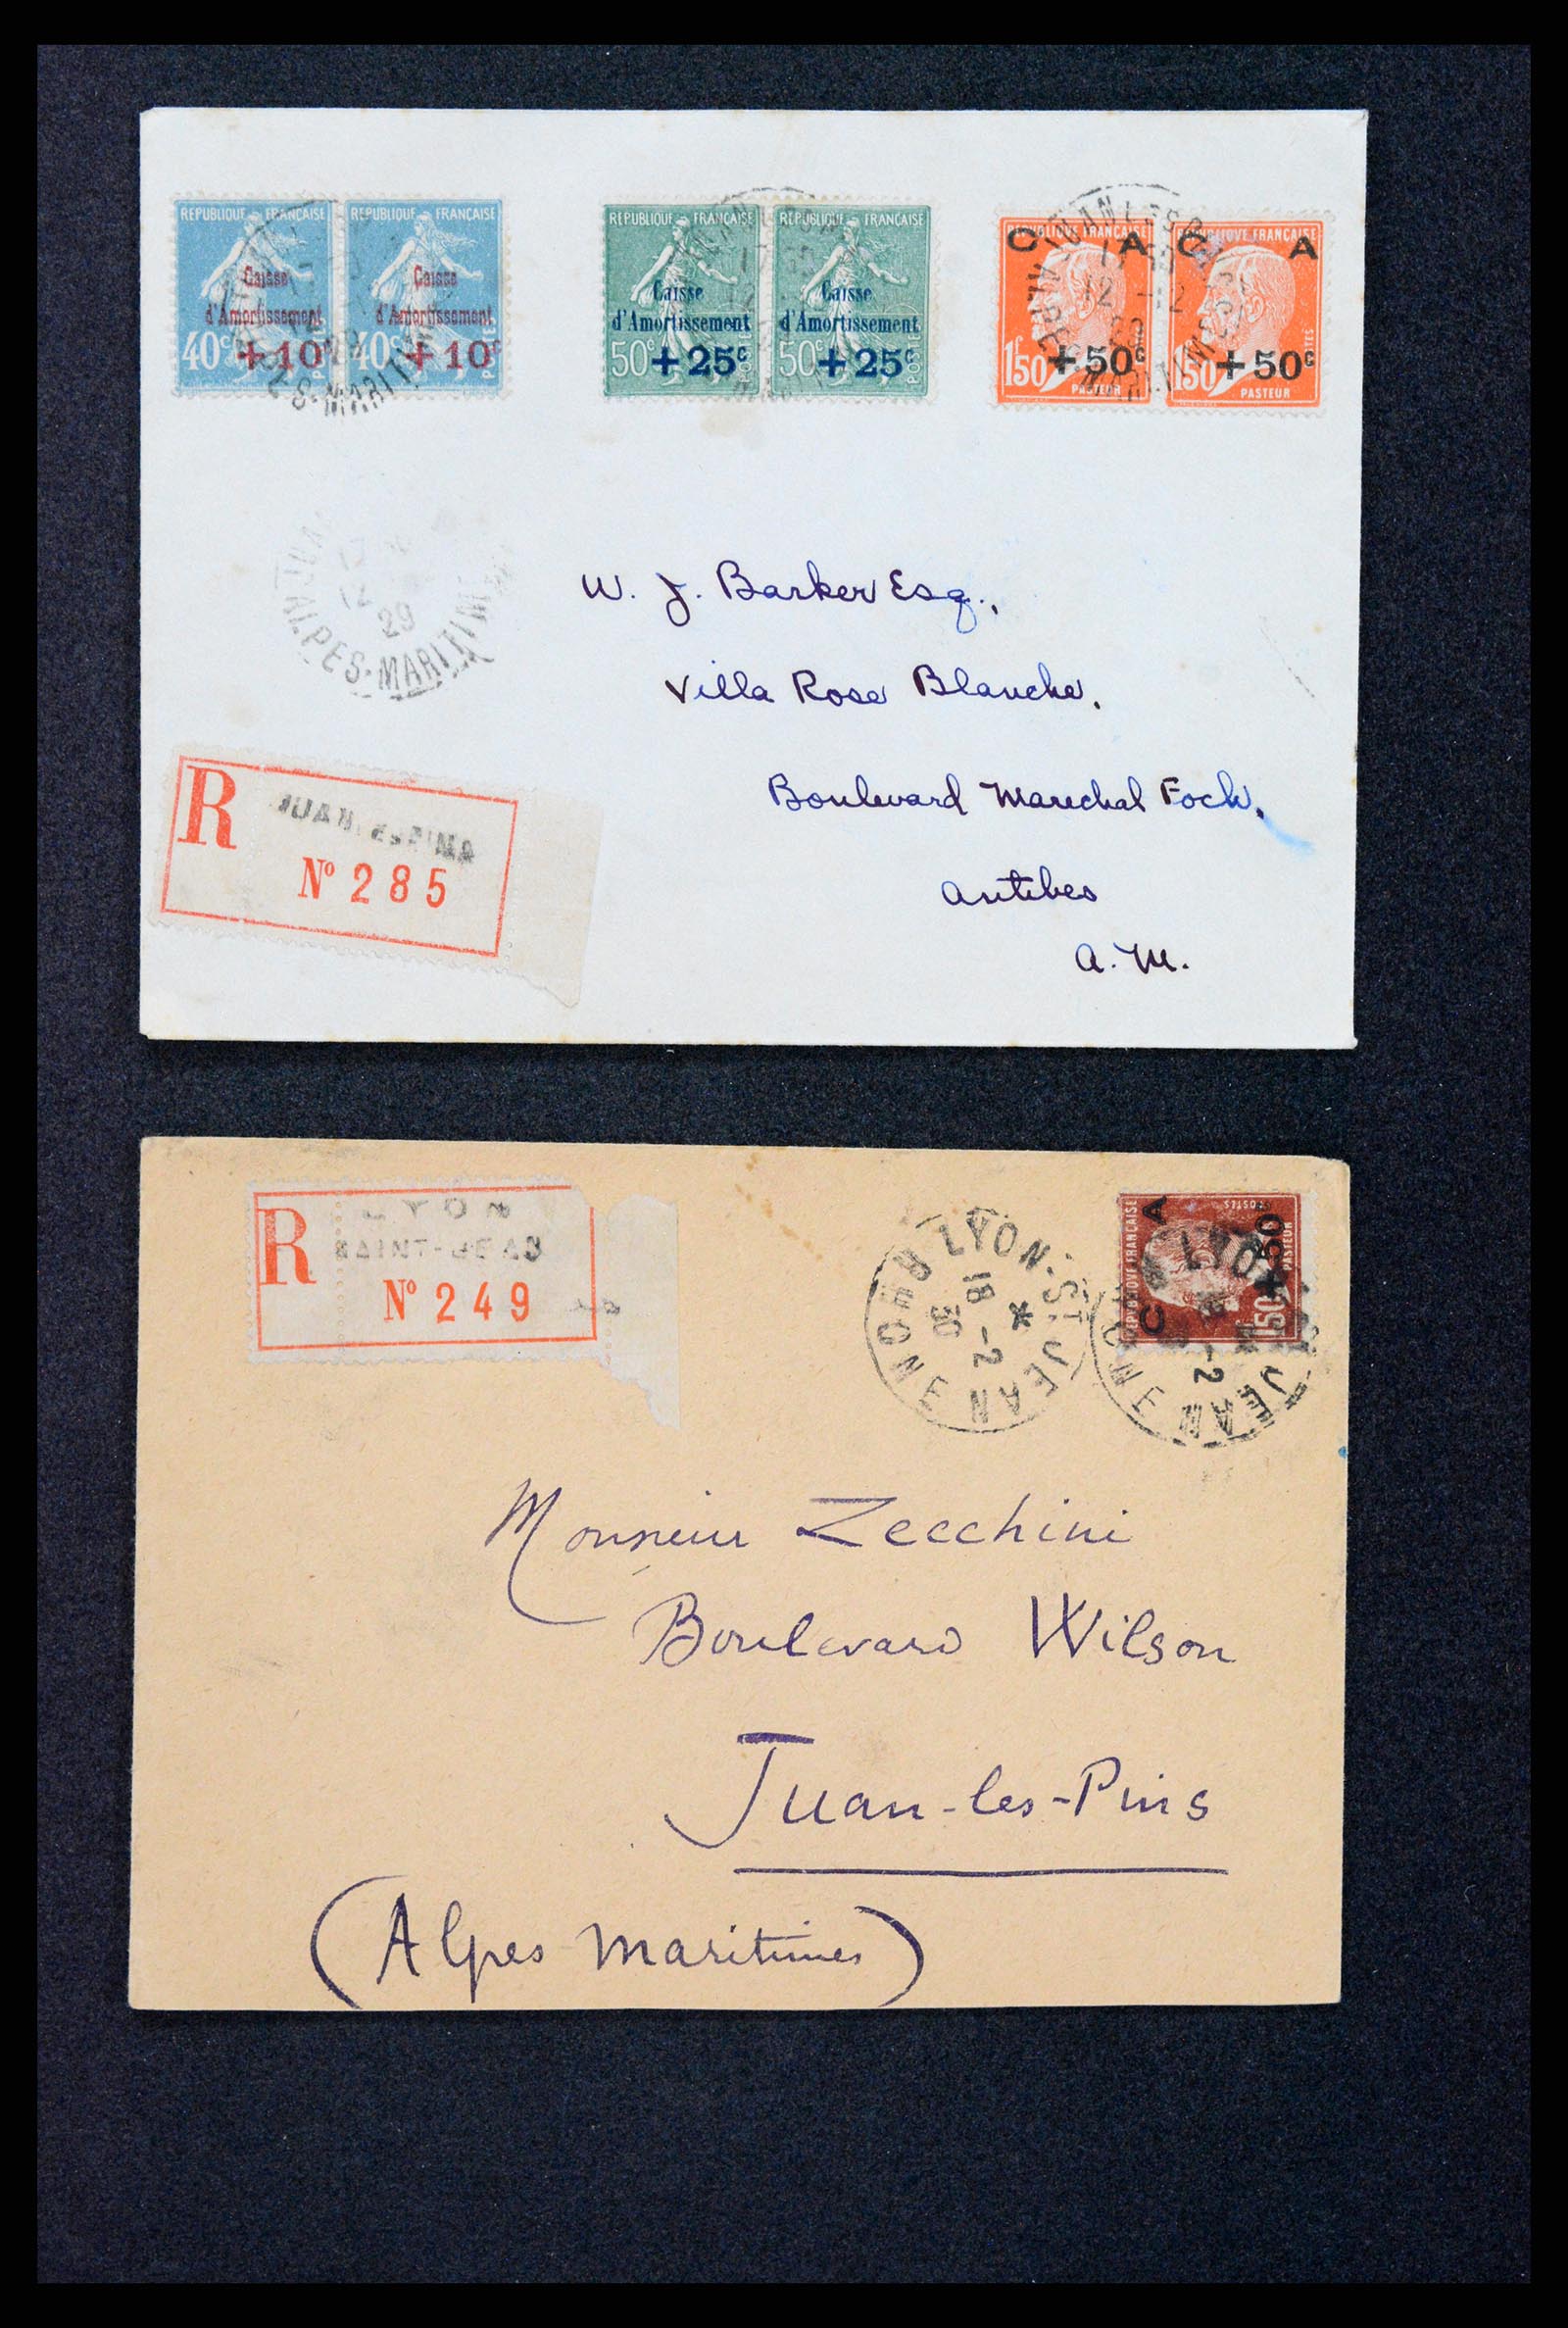 REPUBLIQUE FRANÇAISE REPUBLIQUE FRANÇAISE
Caisse Caisse
d'Amortissement d'Amortissement
40c +10c 40c +10c
POSTES
REPUBLIQUE FRANÇAISE REPUBLIQUE FRANÇAISE
Caisse Caisse
d'Amortissement d'Amortissement
50c +25c 50c +25c
POSTES POSTES
REPUBLIQUE FRANÇAISE REPUBLIQUE FRANÇAISE
C A C A
1f50 +50c 1f50 +50c
PASTEUR PASTEUR
JUAN-LES-PINS
12 -12
29
ALPES-MARITIMES
12
29
ALPES-MARITIM
W. J. Barker Esq.,
Villa Rose Blanche,
Boulevard Marechal Foch,
Antibes
A.M.
R
No 285
LYON
R
No 249
LYON-ST JEAN
18 -2
30
RHONE
REPUBLIQUE FRANÇAISE
POSTES
C A
1f50 +50
PASTEUR
LYON
-2
JEAN
Monsieur Zecchini
Boulevard Wilson
Juan-les-Pins
(Alpes Maritimes)